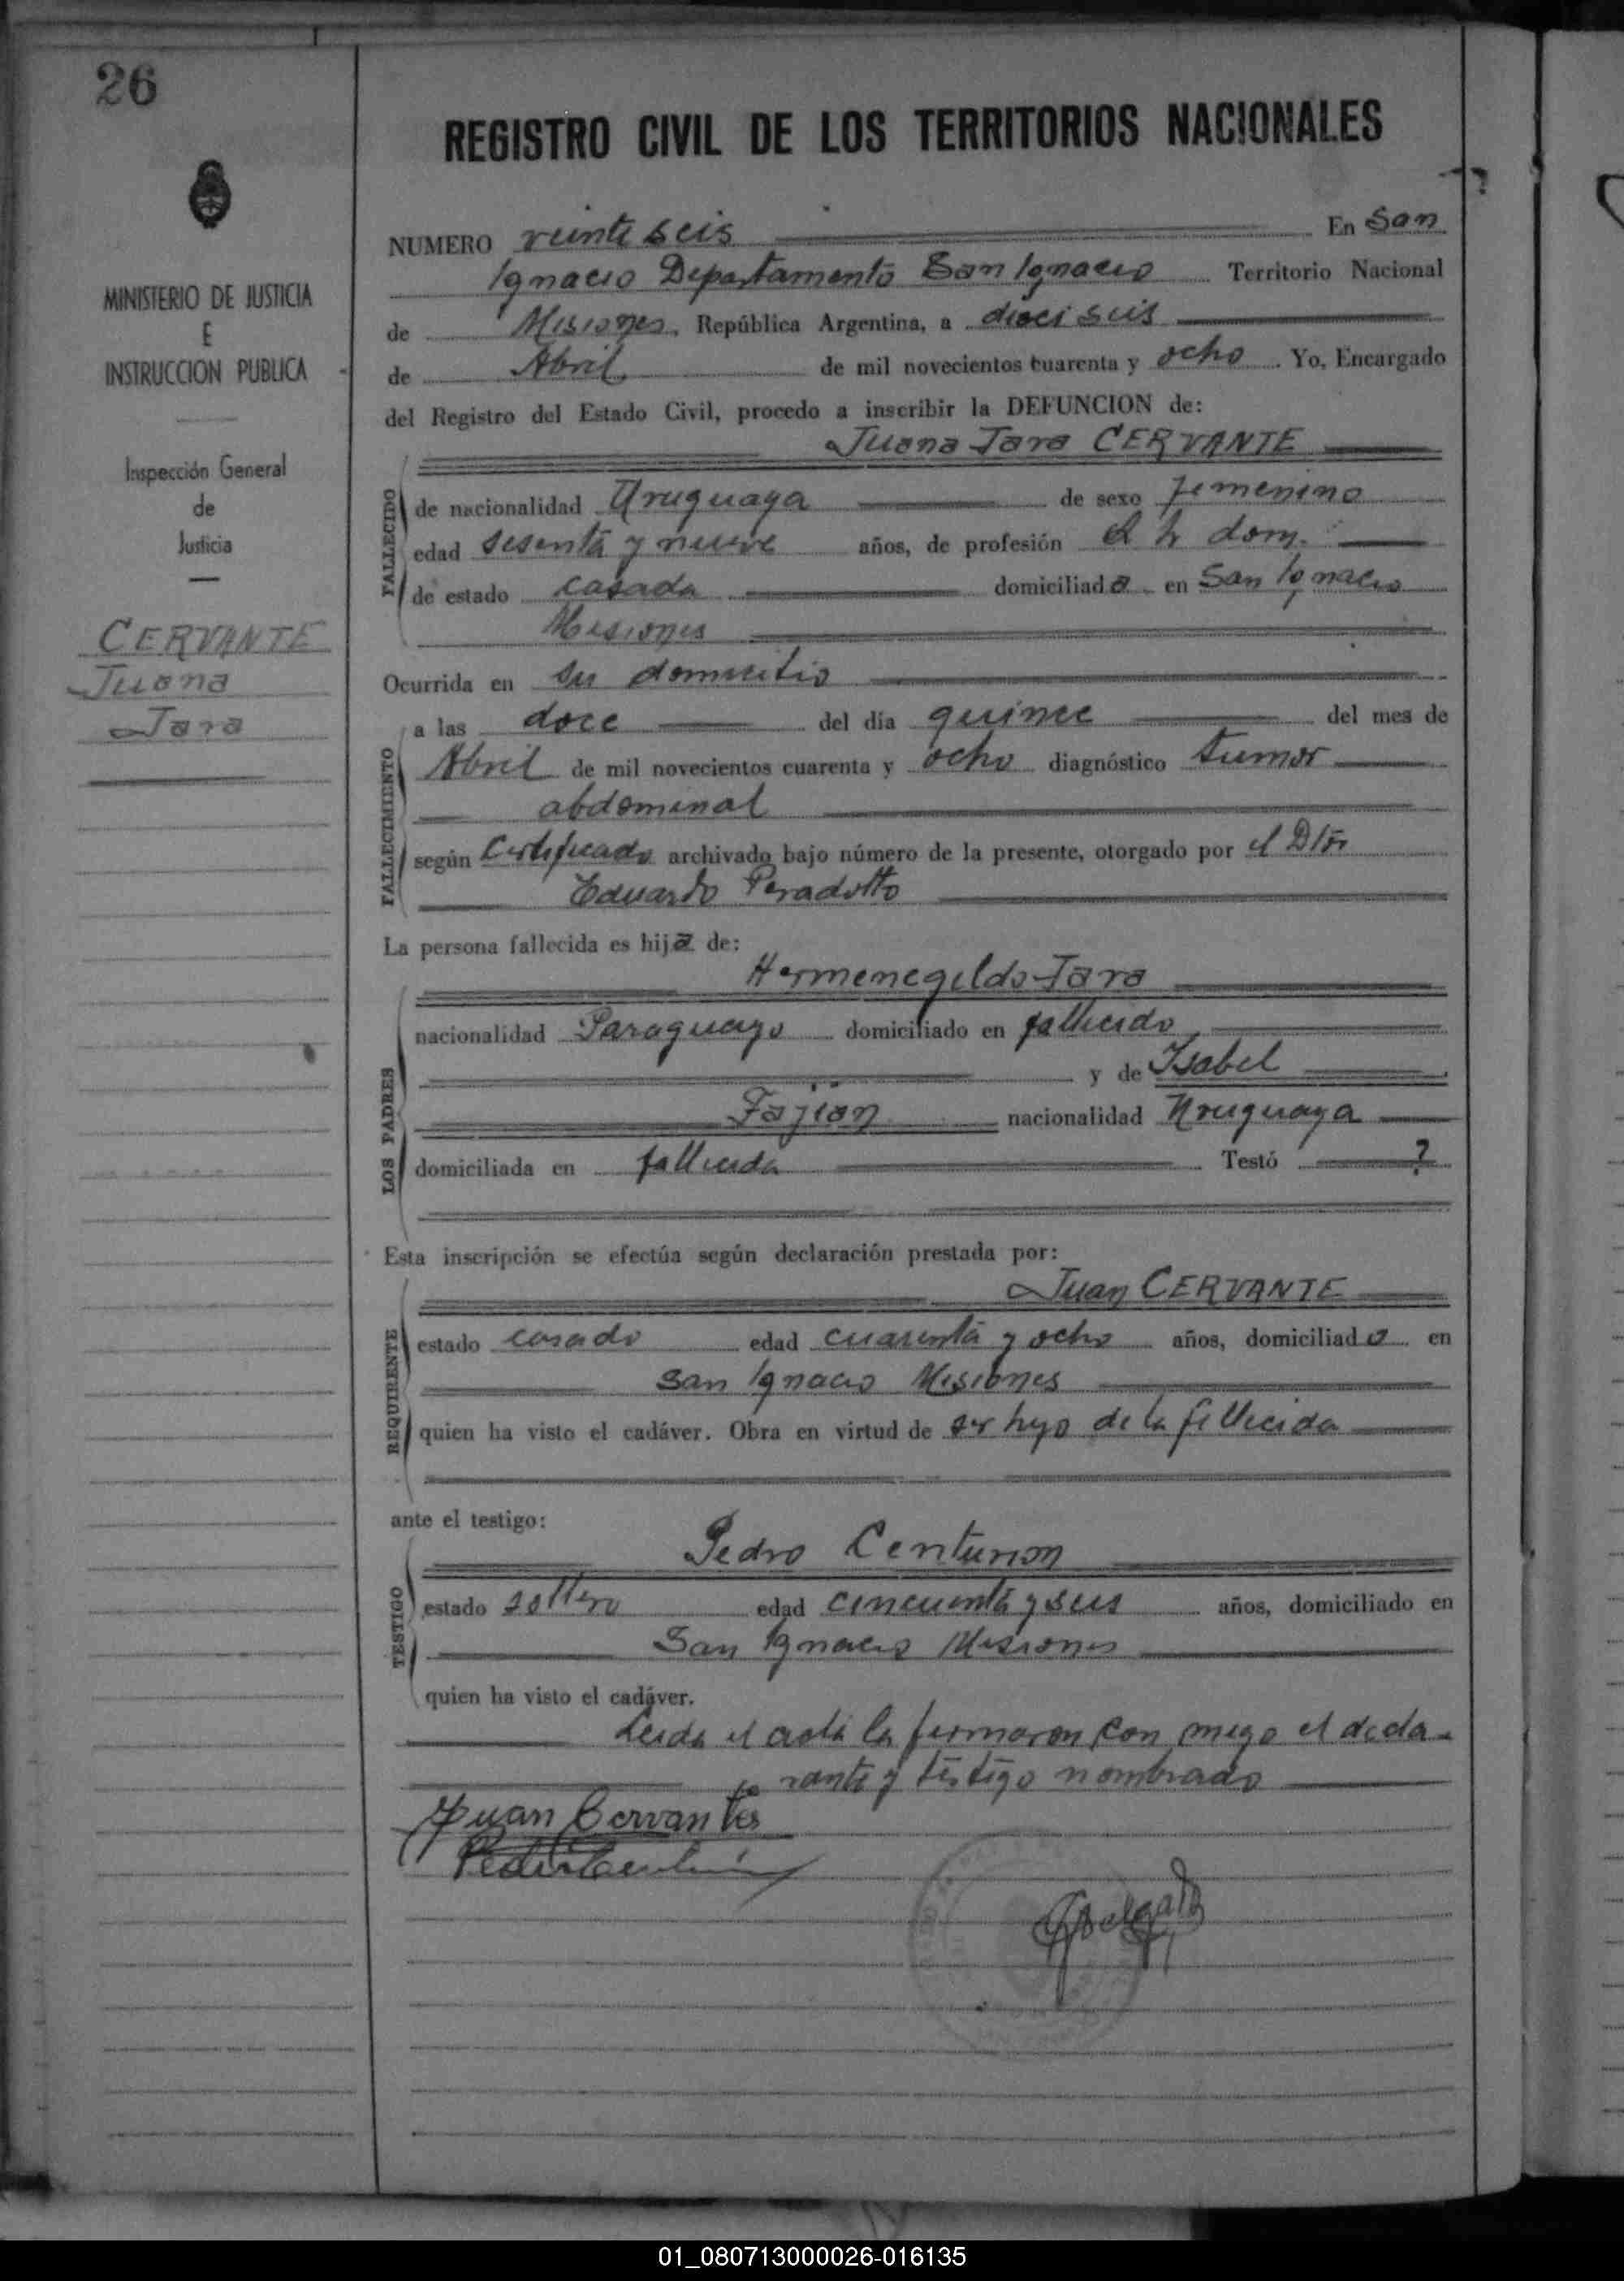 26
REGISTRO CIVIL DE LOS TERRITORIOS NACIONALES
MINISTERIO DE JUSTICIA
E
INSTRUCCION PUBLICA
Inspección General
de
Justicia
CERVANTE
Juana
Jara
NUMERO veinte seis En San
Ignacio Departamento San Ignacio Territorio Nacional
de Misiones, República Argentina, a dieci seis
de Abril de mil novecientos cuarenta y ocho. Yo, Encargado
del Registro del Estado Civil, procedo a inscribir la DEFUNCION de:
Juana Jara CERVANTE
FALLECIDO
de nacionalidad Uruguaya de sexo femenino
edad sesenta y nueve años, de profesión dom.
de estado casada domiciliada en San Ignacio
Misiones
Ocurrida en su domicilio
FALLECIMIENTO
a las doce del día quince del mes de
Abril de mil novecientos cuarenta y ocho diagnóstico tumor
abdominal
según Certificado archivado bajo número de la presente, otorgado por el
Eduardo Peradotto
La persona fallecida es hija de:
LOS PADRES
Hermenegildo Jara
nacionalidad Paraguayo domiciliado en fallecido
y de Isabel
nacionalidad Uruguaya
domiciliada en fallecida Testó ?
Esta inscripción se efectúa según declaración prestada por:
REQUIRENTE
Juan CERVANTE
estado casado edad cuarenta y ocho años, domiciliado en
San Ignacio Misiones
quien ha visto el cadáver. Obra en virtud de ser hijo de la fallecida
ante el testigo:
TESTIGO
Pedro Centurion
estado soltero edad cincuenta y seis años, domiciliado en
San Ignacio Misiones
quien ha visto el cadáver.
Leida el acta la firmaron con migo el decla-
rante y testigo nombrado
Juan Cervantes
Pedro Centurión
01_080713000026-016135